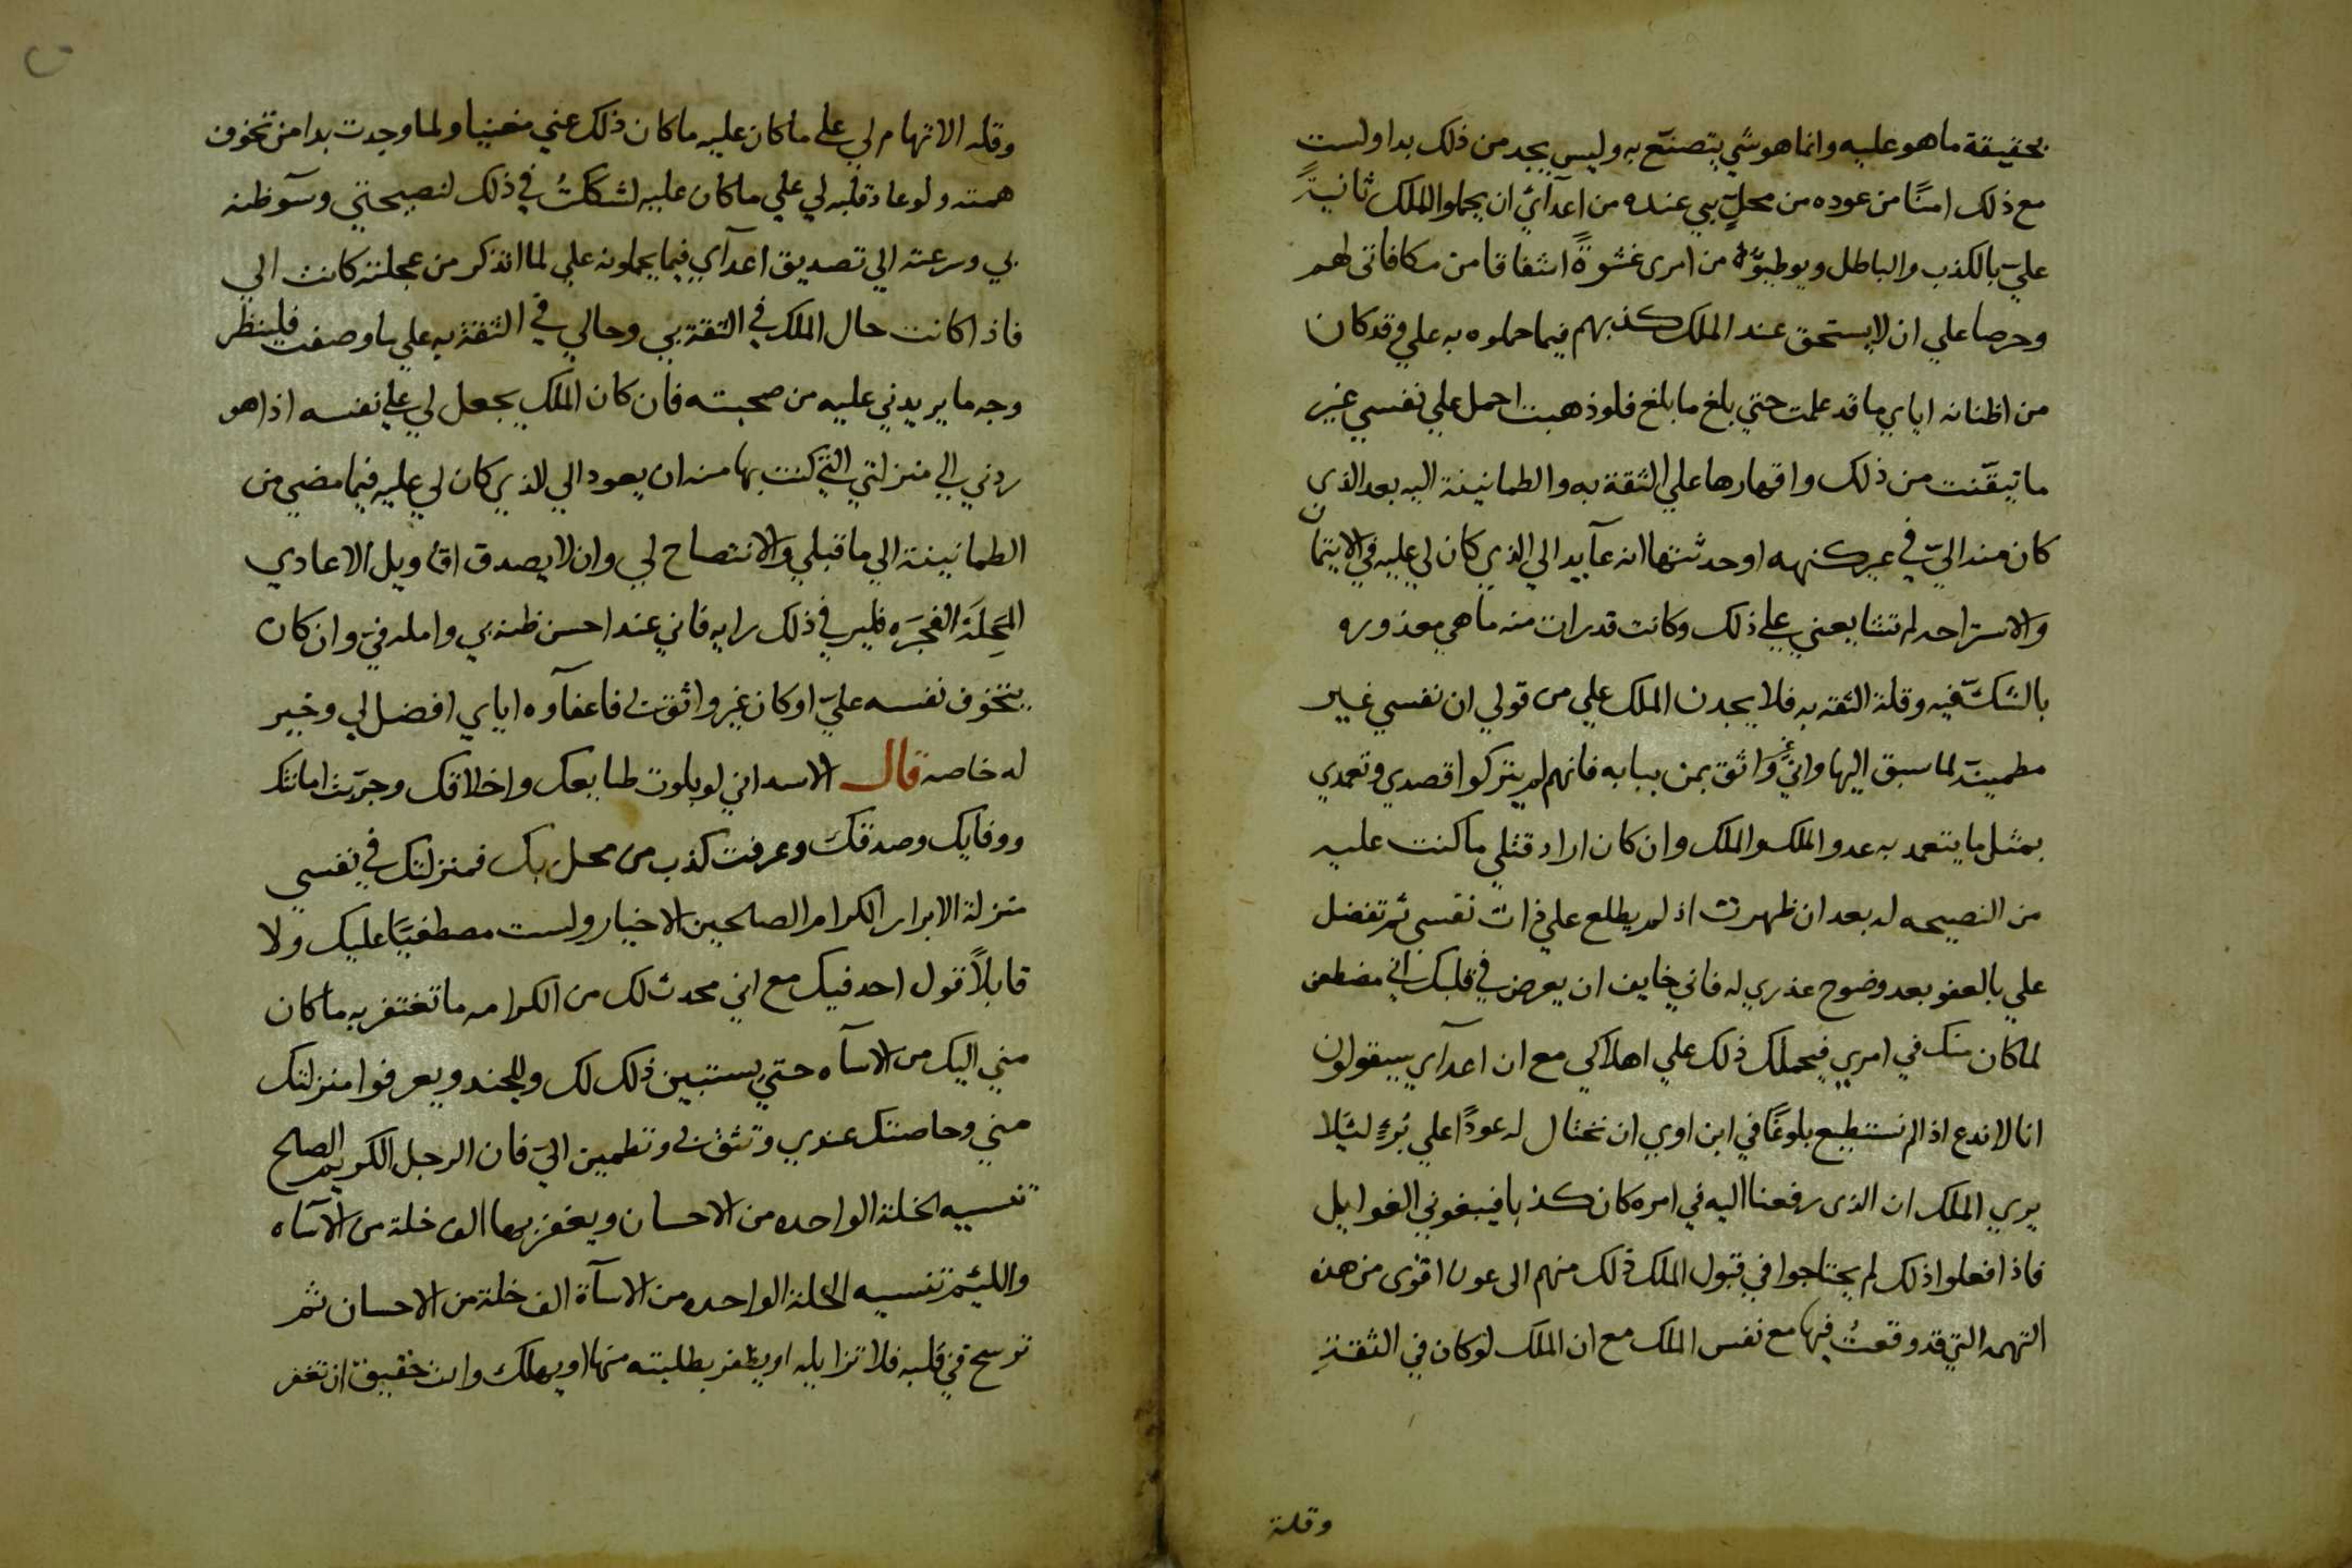 بحقيقة ما هو عليه وانما هو شي يتصنّع به وليس يجد من ذلك بدا ولست
مع ذلك امنًا من عوده من محلٍ بي عنده من اعدآئ ان يحملوا الملك ثانيةً
عليّ بالكذب والباطل ويوطيوّه من امرى عشوةً اشفاقا من مكافاتى لهم
وحرصا علي ان لا يستحق عند الملك كذبهم فيما حملوه به علي وقد كان
من اظنانه اياي ما قد علمت حتي بلغ ما بلغ فلو ذهبت احمل علي نفسي غير
ما تيقّنت من ذلك واقهارها علي الثقة به والطمانينة اليه بعد الذى
كان منه اليّ في غير كنهه او حدثتها انه عآيد الي الذي كان لي عليه في الايتمان
والاستراحه لم تتابعني علي ذلك وكانت قد رات منه ما هي معذوره
بالشكّ فيه وقلة الثقه به فلا يجدن الملك علي من قولي ان نفسي غير
مطمينّة لما سبق اليها واني غير واثق بمن ببابه فانهم لم يتركوا قصدي وتعمدي
بمثل ما يتعمد به عدو الملك والملك وان كان اراد قتلي ما كنت عليه
من النصيحه له بعد ان ظهرت اذ لم يطلع علي ذات نفسي ثم تفضل
علي بالعفو بعد وضوح عذري له فاني خايف ان يعرض في قلبك اني مضطغن
لما كان منك في امري فيحملك ذلك علي اهلاكي مع ان اعدآي سيقولون
انا لا ندع اذا لم نستطيع بلوغًا في ابن اوي ان نحتال له عودًا علي بُرءٍ ليلا
يري الملك ان الذى رفعنا اليه في امره كان كذبا فيبغوني الغوايل
فاذا فعلوا ذلك لم يحتاجوا في قبول الملك ذلك منهم الى عون اقوى من هذه
التهمه التي قد وقعتُ فيها مع نفس الملك مع ان الملك لو كان في الثقةِ
وقلة
وقله الاتهام لي علي ما كان عليه ما كان ذلك عني مغنيا ولما وجدت بدا من تخوف
همته ولو عاد قلبه لي علي ما كان عليه لشككتُ في ذلك لنصيحتي وسوٓ ظنه
بي وسرعته الي تصديق اعدآي فيما يحملونه علي لما اتذكر من عجلته كانت الي
فاذا كانت حال الملك في الثقة بي وحالي في الثقة به علي ما وصفت فلينظر
وجه ما يريدني عليه من صحبته فان كان الملك يجعل لي علي نفسه اذا هو
ردني الي منزلتي التي كنت بها منه ان يعود الي الذي كان لي عليه فيما مضي من
الطمانينة الي ما قبلي والانتصاح لي وان لا يصدق اقاويل الاعادي
المَحِلَة الفجَرَه فلير في ذلك رايه فاني عند احسن ظنه بي وامله فيّ وان كان
يتخوف نفسه عليّ او كان غير واثق بي فاعفآوه اياي افضل لي وخير
له خاصه قال الاسد اني لو بلوت طبايعك واخلاقك وجرّبت امانتك
ووفايك وصدقك وعرفت كذب من محل بك فمنزلتك في نفسي
منزلة الابرار الكرام الصالحين الاخيار ولست مصطغيًا عليك ولا
قابلاً قول احد فيك مع اني محدث لك من الكرامه ما تغتفر به ما كان
مني اليك من الاسآه حتي يستبين ذلك لك وللجند ويعرفوا منزلتك
مني وخاصتك عندي وتثق بي وتطمين اليّ فان الرجل الكريم الصالح
تنسيه الخلة الواحده من الاحسان ويغفر بها الف خلة من الاسآه
والليئم تنسيه الخلة الواحده من الاسآة الف خلة من الاحسان ثم
ترسخ في قلبه فلا تزايله او يظفر بطلبته منها او يهلك وانت حقيق ان تغفر